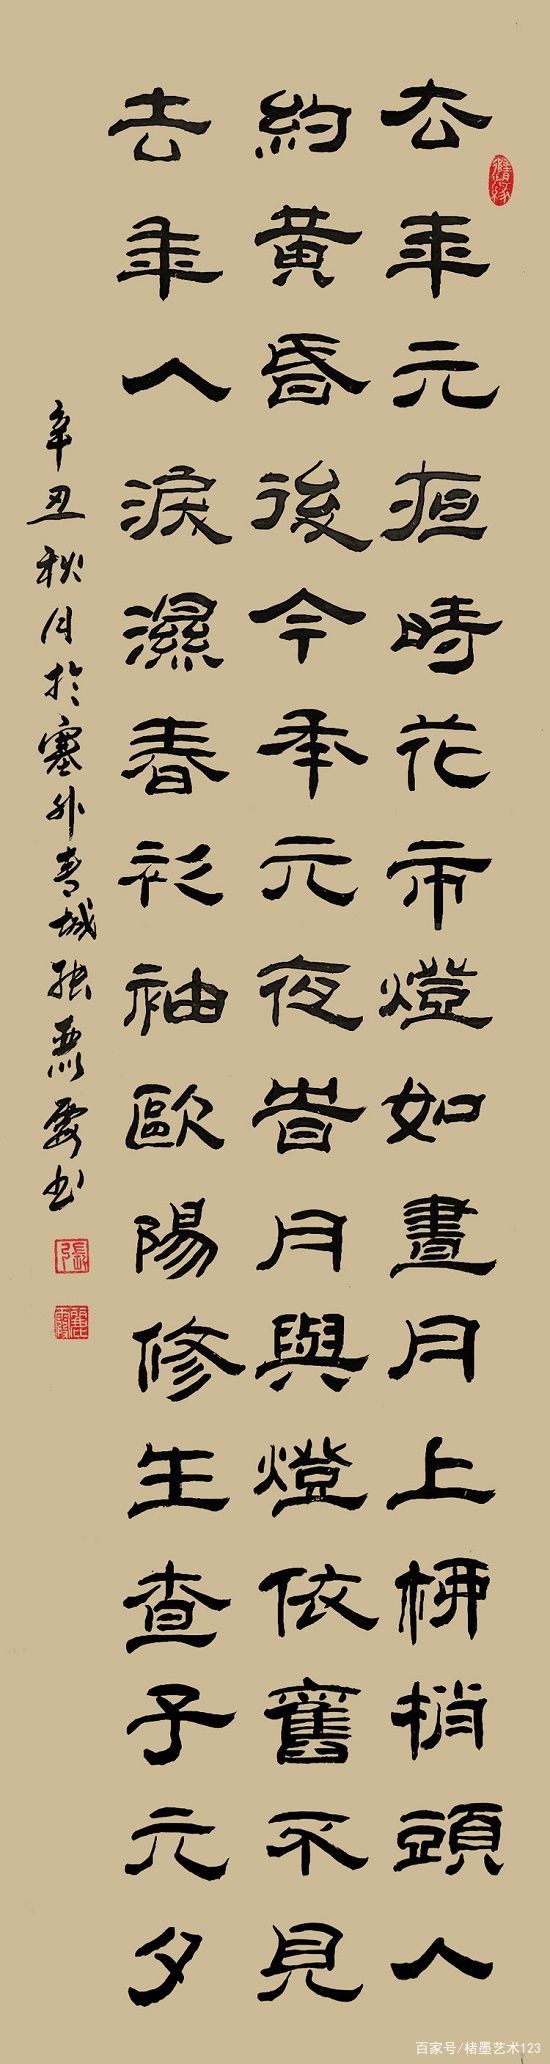 去年元夜時花市燈如晝月上柳梢頭人
約黄昏後今年元夜旹月與燈依舊不見
去年人淚濕春衫袖歐陽修生查子元夕
辛丑秋月於塞外青城張麗霞书
張
麗霞
百家号/楮墨艺术123